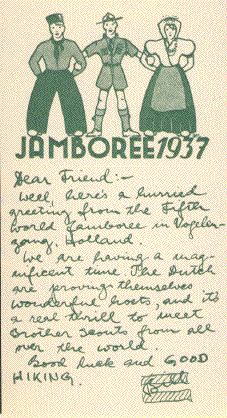 JAMBOREE 1937
Dear Friend:-
Well, here's a hurried
greeting from the Fifth
World Jamboree in Vogelen-
zang, Holland.
We are having a mag-
nificent time. The Dutch
are proving themselves
wonderful hosts, and it's
a real thrill to meet
Brother Scouts from all
over the world.
Good luck and GOOD
HIKING.